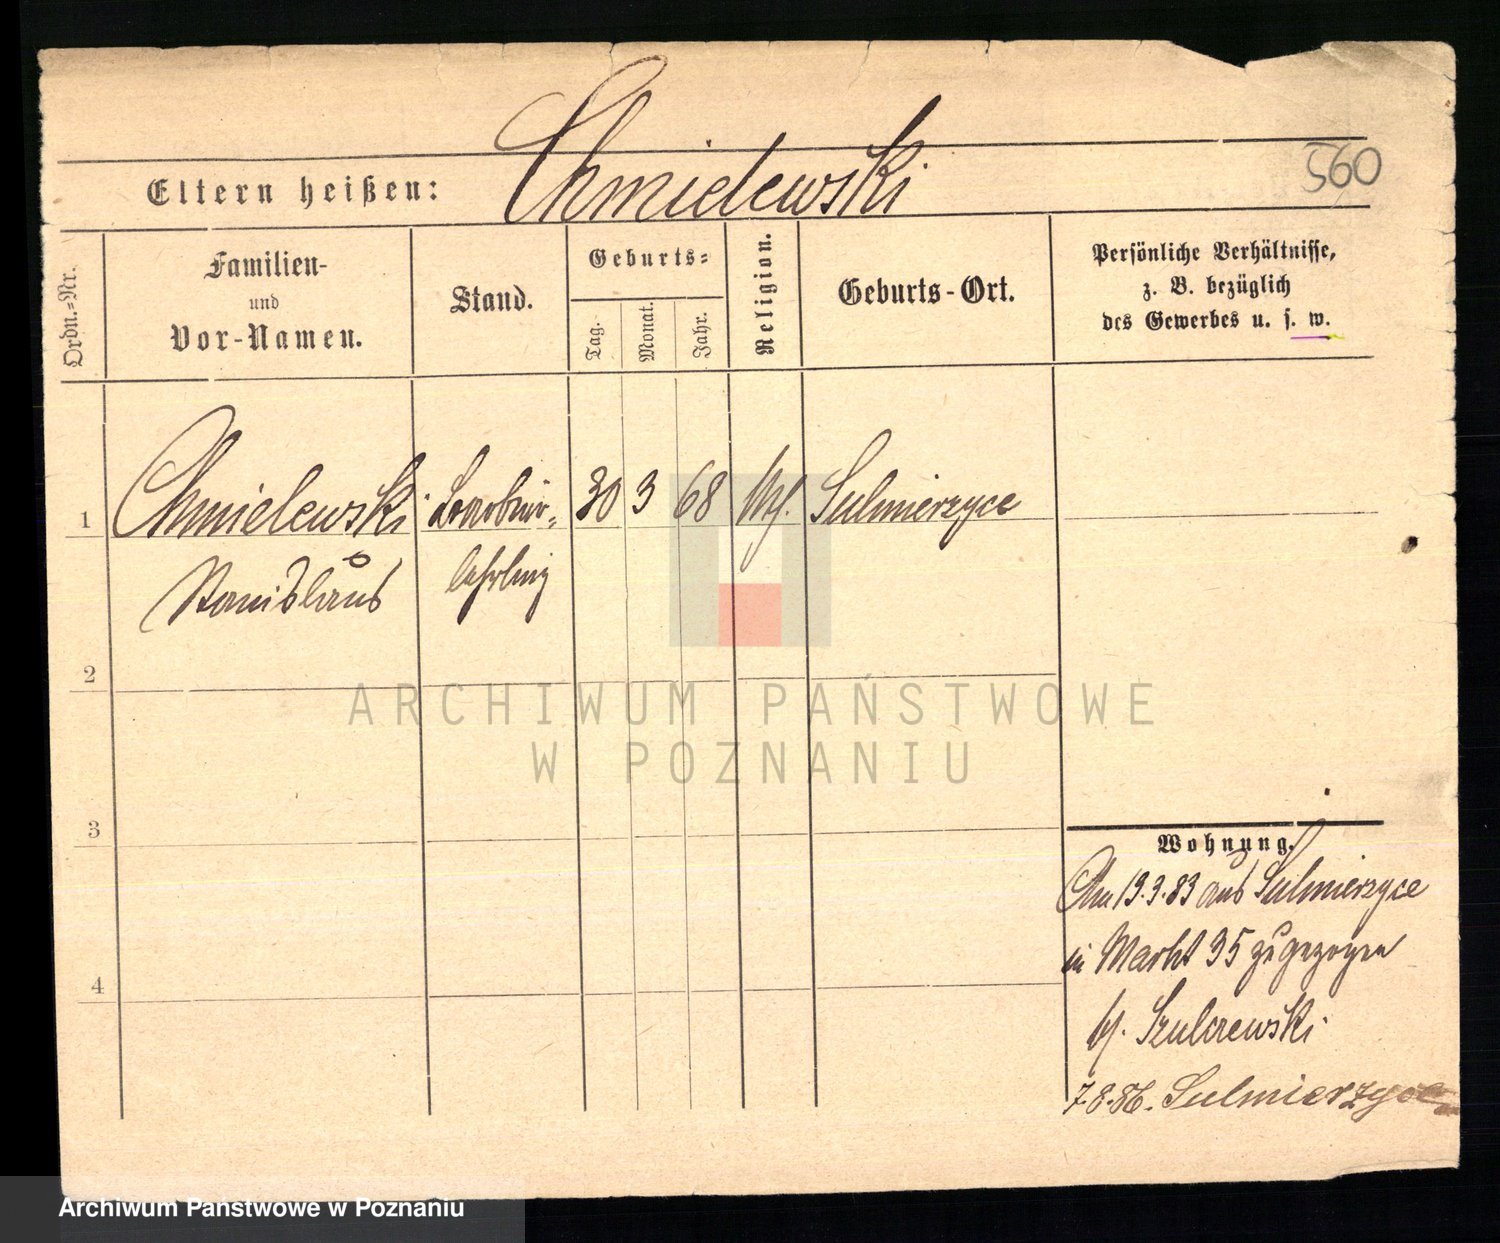 Chmielewski
Eltern heißen:
560
Ordn.-Nr.
Familien-
und
Vor-Namen.
Stand.
Geburts-
Tag.
Monat.
Jahr.
Religion.
Geburts-Ort.
Persönliche Verhältnisse,
z. B. bezüglich
des Gewerbes u. s. w.
1
Chmielewski
Stanislaus
lehrling
30
3
68
Sulmierzyce
2
3
4
ARCHIWUM PAŃSTWOWE
W POZNANIU
Wohnung.
Am 19.3.83 aus Sulmierzyce
in Markt 35 zugezogen
b/. Szulczewski
7.8.86. Sulmierzyce
Archiwum Państwowe w Poznaniu